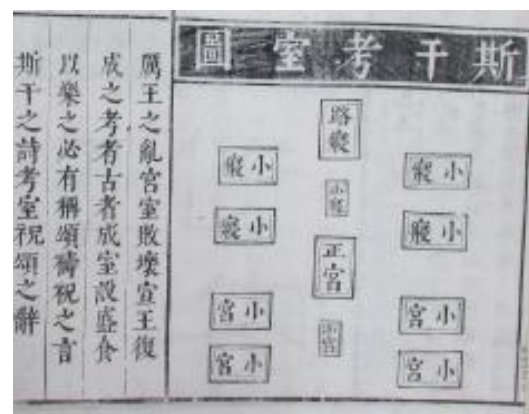 斯干考室圖
小寢
小寢
小宮
小宮
路寢
小寢
正宮
小宮
小寢
小寢
小宮
小宮
厲王之亂宮室敗壞宣王復
成之考者古者成室設盛食
以樂之必有稱頌禱祝之言
斯干之詩考室祝頌之辭